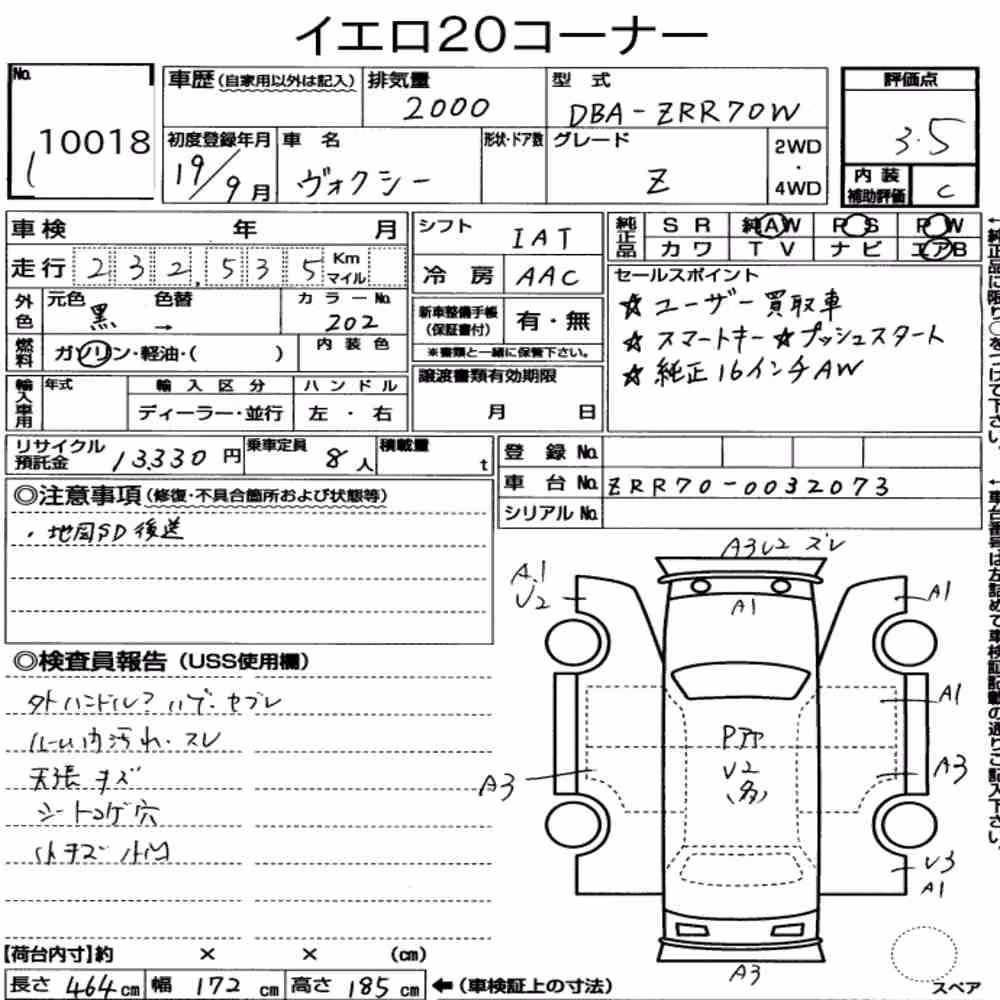 イエロ20コーナー
No.
10018
車歴(自家用以外は記入)
排気量
2000
型 式
DBA-ZRR70W
評価点
3.5
初度登録年月
19/9月
車 名
ヴォクシー
形状・ドア数
グレード
Z
2WD
・
4WD
内 装
補助評価
C
車検 年 月
走行 232,535 Km
マイル
外色
元色 黒 色替 →
カラーNo.
202
燃料
ガソリン・軽油・( )
内 装 色
輸入車用
年式
輸 入 区 分
ディーラー・並行
ハ ン ド ル
左 ・ 右
シフト
IAT
冷 房
AAC
新車整備手帳
(保証書付)
有・無
※書類と一緒に保管下さい。
譲渡書類有効期限
月 日
純正品
S R 純AW P S P W
カ ワ T V ナ ビ エアB
セールスポイント
☆ユーザー買取車
☆スマートキー☆プッシュスタート
☆純正16インチAW
←純正品に限り○をつけて下さい。
リサイクル
預託金
13,330円
乗車定員
8人
積載量
t
登 録 No.
車 台 No. ZRR70-0032073
シリアル No.
←車台番号は左詰めで車検証記載の通りご記入下さい。
◎注意事項(修復・不具合箇所および状態等)
・地図SD後送
◎検査員報告(USS使用欄)
外ハンドル
ルーム内汚れ・スレ
天張キズ
シートコゲ穴
A3 U2 ズレ
A1
U2
A1
A1
A1
A3
A3
U2
(多)
U3
A1
A3
スペア
【荷台内寸】約 × × (cm)
長さ 464 cm 幅 172 cm 高さ 185 cm ←(車検証上の寸法)